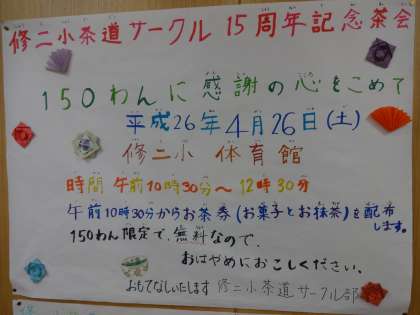 修二小茶道サークル 15周年記念茶会
150わんに感謝の心をこめて
平成26年4月26日(土)
修二小 体育館
時間 午前10時30分～12時30分
午前10時30分からお茶券(お菓子とお抹茶)を配布
します。
150わん限定で、無料なので、
おはやめにおこしください。
おもてなしいたします 修二小茶道サークル部